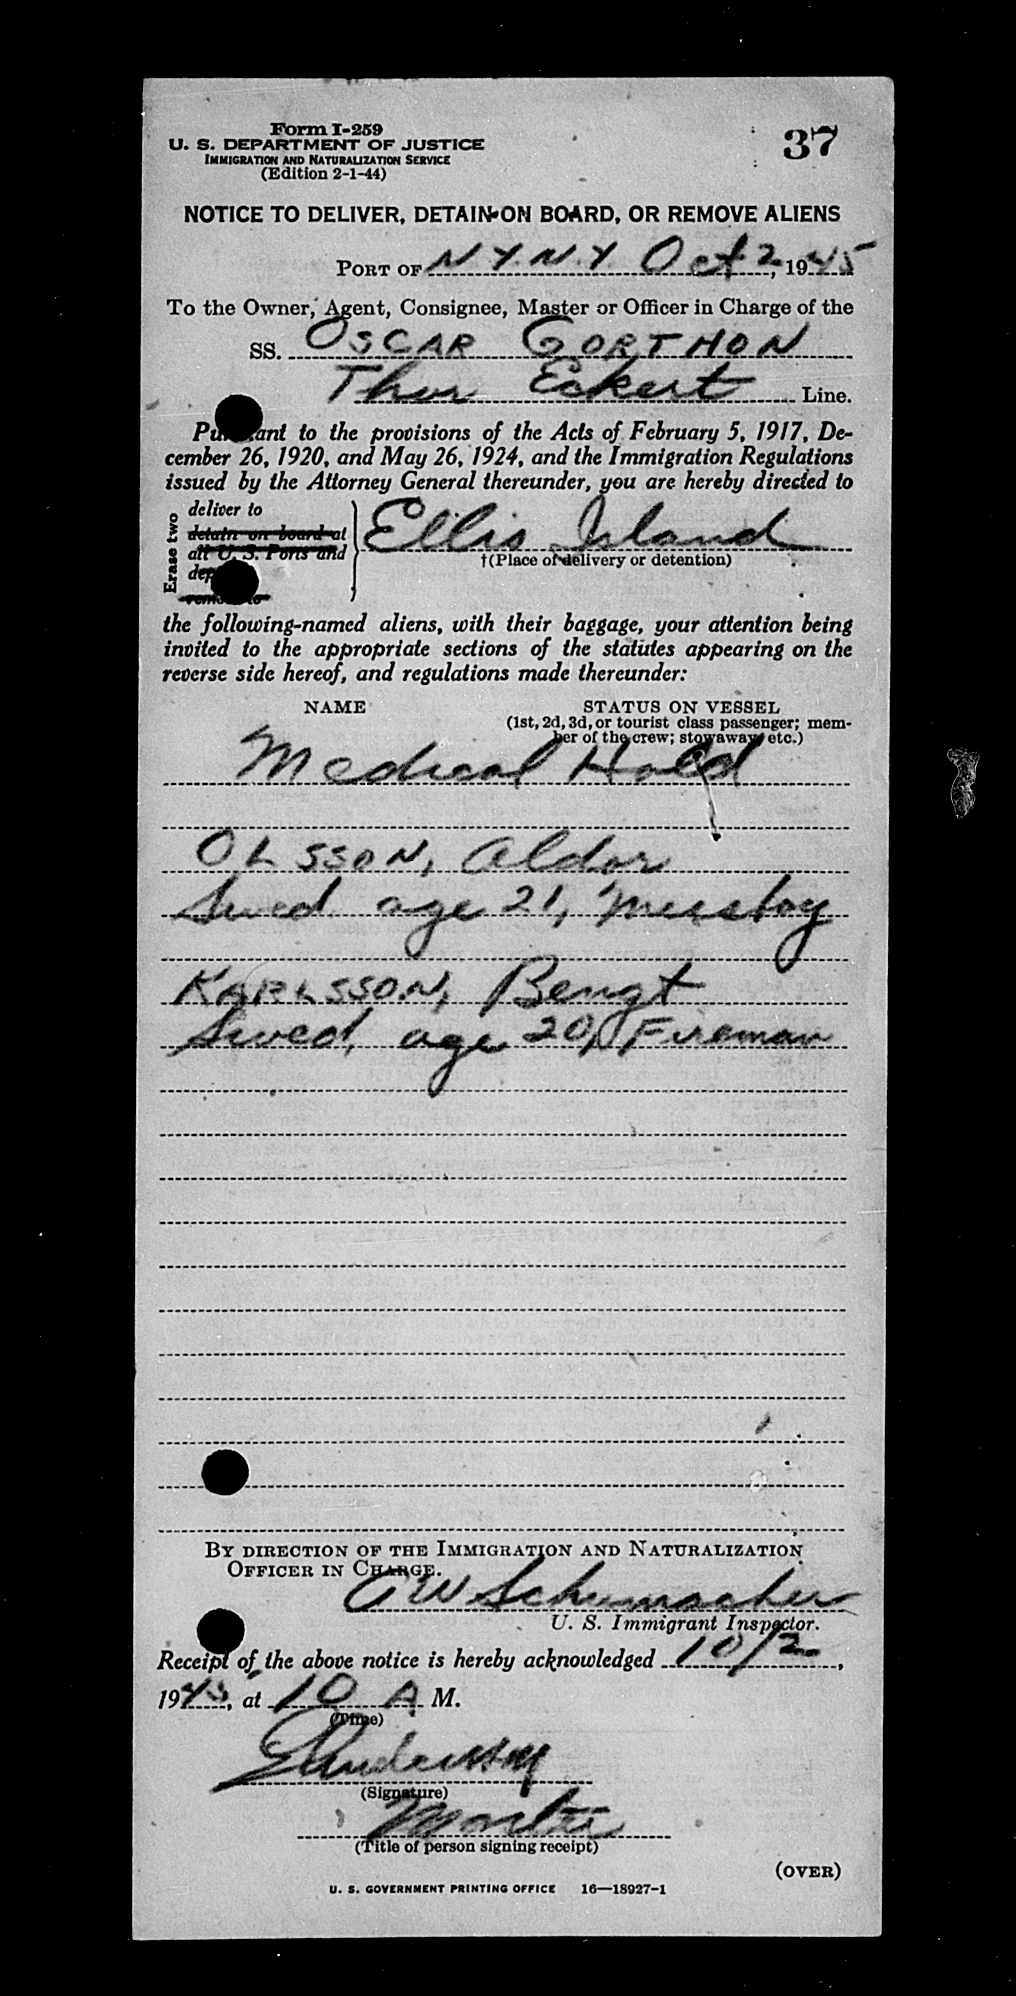 Form I-259
U. S. DEPARTMENT OF JUSTICE
IMMIGRATION AND NATURALIZATION SERVICE
(Edition 2-1-44)
37
NOTICE TO DELIVER, DETAIN ON BOARD, OR REMOVE ALIENS
PORT OF N Y N Y Oct 2, 1945
To the Owner, Agent, Consignee, Master or Officer in Charge of the
SS. OSCAR GORTHON
Thor Eckert Line.
Pursuant to the provisions of the Acts of February 5, 1917, De-
cember 26, 1920, and May 26, 1924, and the Immigration Regulations
issued by the Attorney General thereunder, you are hereby directed to
Erase two
deliver to
detain on board at
all U. S. Ports and
remove to
Ellis Island
†(Place of delivery or detention)
the following-named aliens, with their baggage, your attention being
invited to the appropriate sections of the statutes appearing on the
reverse side hereof, and regulations made thereunder:
NAME STATUS ON VESSEL
(1st, 2d, 3d, or tourist class passenger; mem-
ber of the crew; stowaway, etc.)
Medical Hold
OLSSON, Aldor
Swed age 21, Messboy
KARLSSON, Bengt
Swed, age 20, Fireman
BY DIRECTION OF THE IMMIGRATION AND NATURALIZATION
OFFICER IN CHARGE.
A W Schumacher
U. S. Immigrant Inspector.
Receipt of the above notice is hereby acknowledged 10/2,
1945, at 10 A M.
(Time)
(Signature)
Master
(Title of person signing receipt)
(OVER)
U. S. GOVERNMENT PRINTING OFFICE 16—18927-1